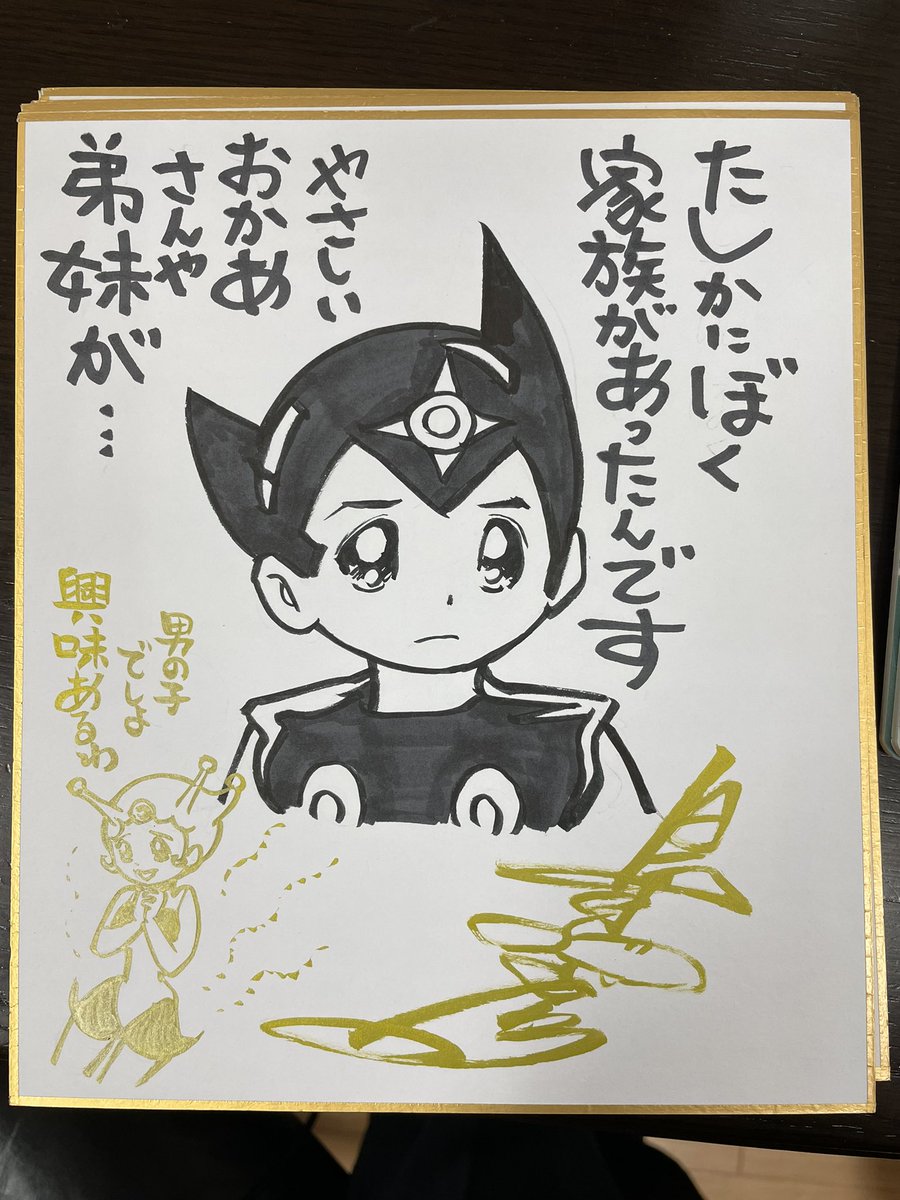 たしかにぼく
家族があったんです
やさしい
おかあ
さんや
弟妹が…
男の子
でしょ
興味あるわ